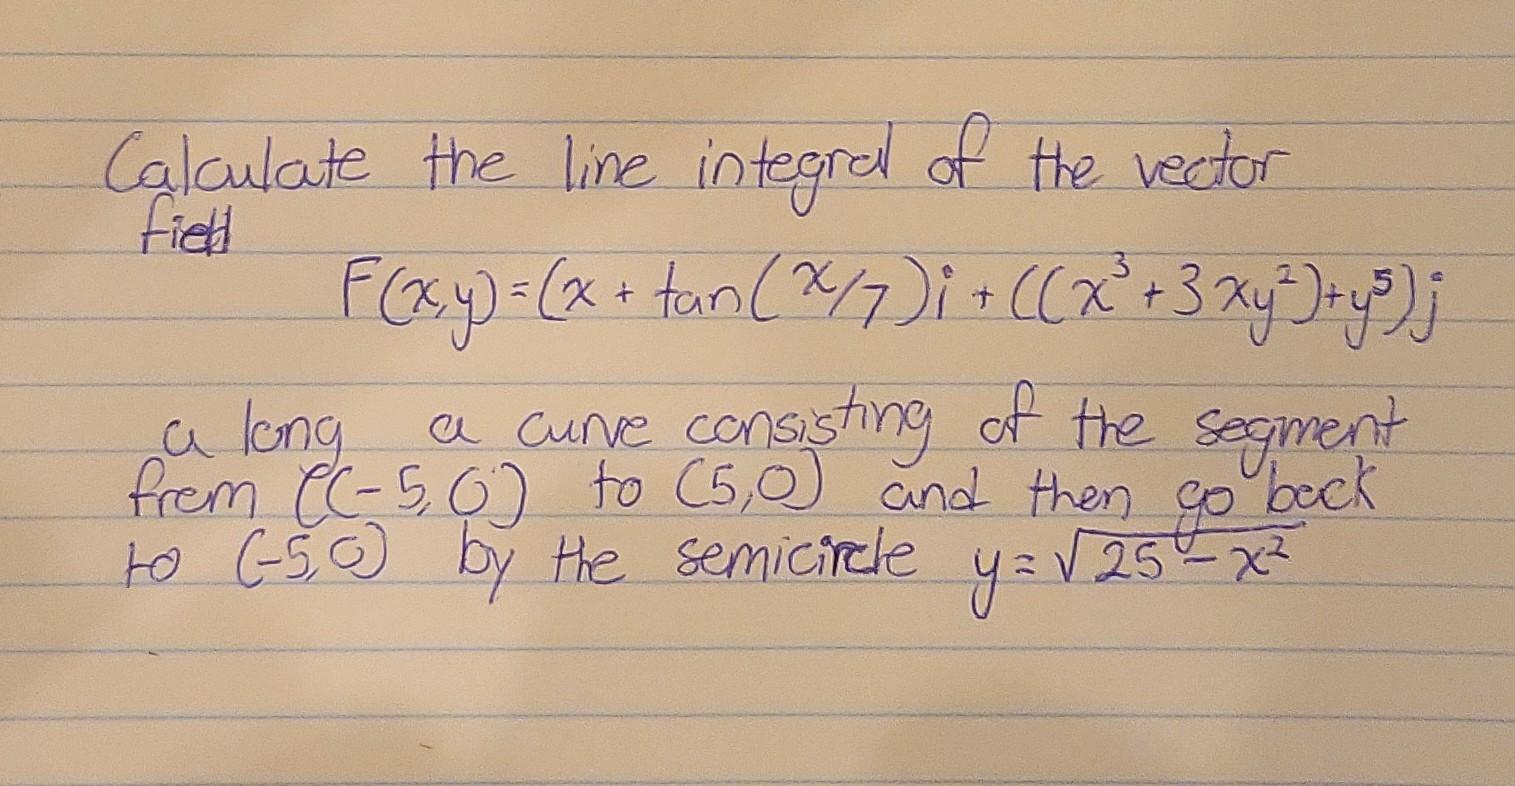 Calculate the line integral of the vector
field
F(x,y)=(x + tan(x/7)i + ((x³+3xy²)+y⁵)j
a long a curve consisting of the segment
from ((-5,0) to (5,0) and then go back
to (-5,0) by the semicircle y=√25-x²